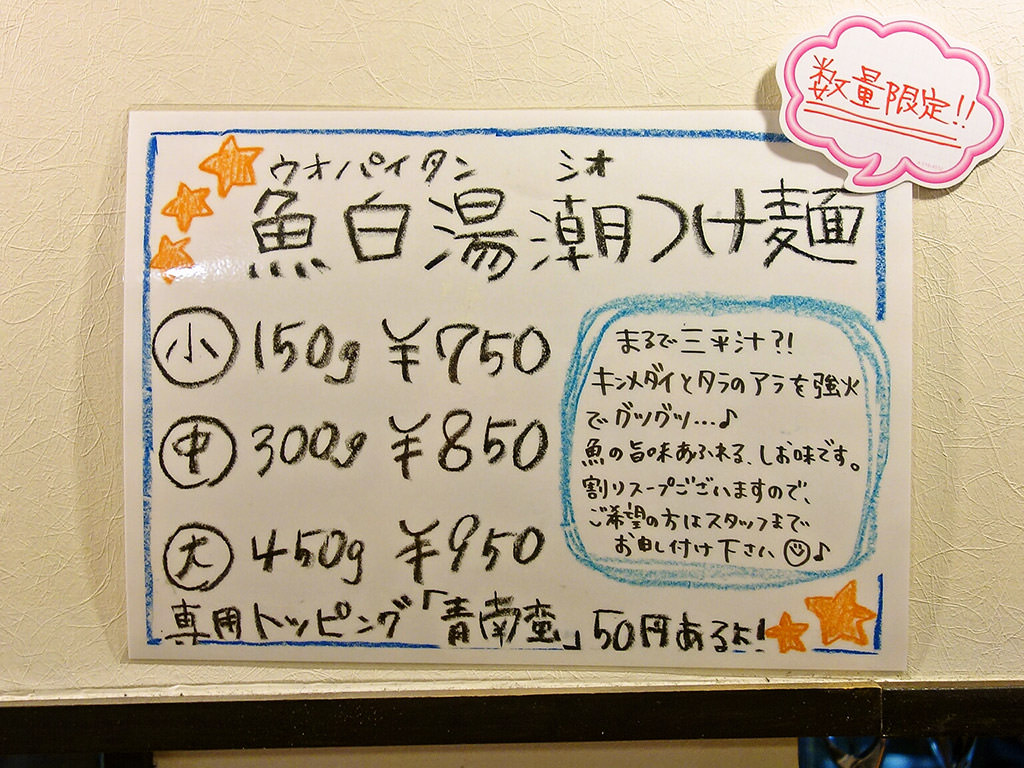 数量限定!!
ウオパイタン シオ
魚白湯潮つけ麺
小 150g ¥750
中 300g ¥850
大 450g ¥950
まるで三平汁?!
キンメダイとタラのアラを強火
でグツグツ…♪
魚の旨味あふれる、しお味です。
割りスープございますので、
ご希望の方はスタッフまで
お申し付け下さい♪
専用トッピング「青南蛮」50円あるよ!